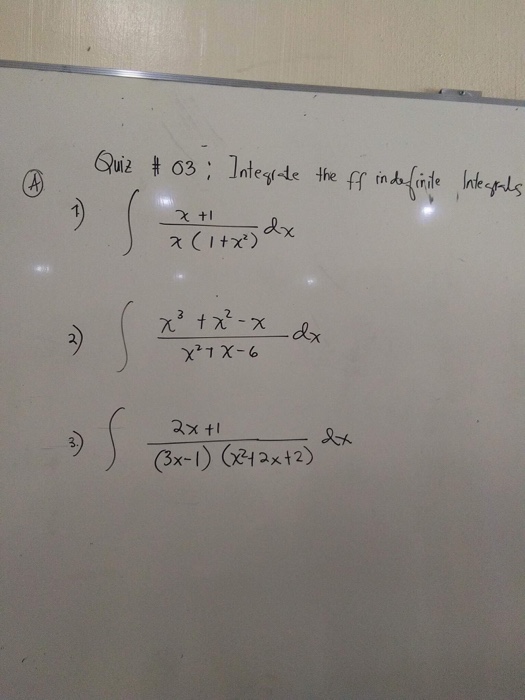 Quiz # 03 ; Integrate the ff indefinite Integrals
Ⓐ
1) ∫ x +1 / x ( 1+x²) dx
2) ∫ x³ + x² - x / x² + x - 6 dx
3.) ∫ 2x +1 / (3x-1) (x²+2x+2) dx